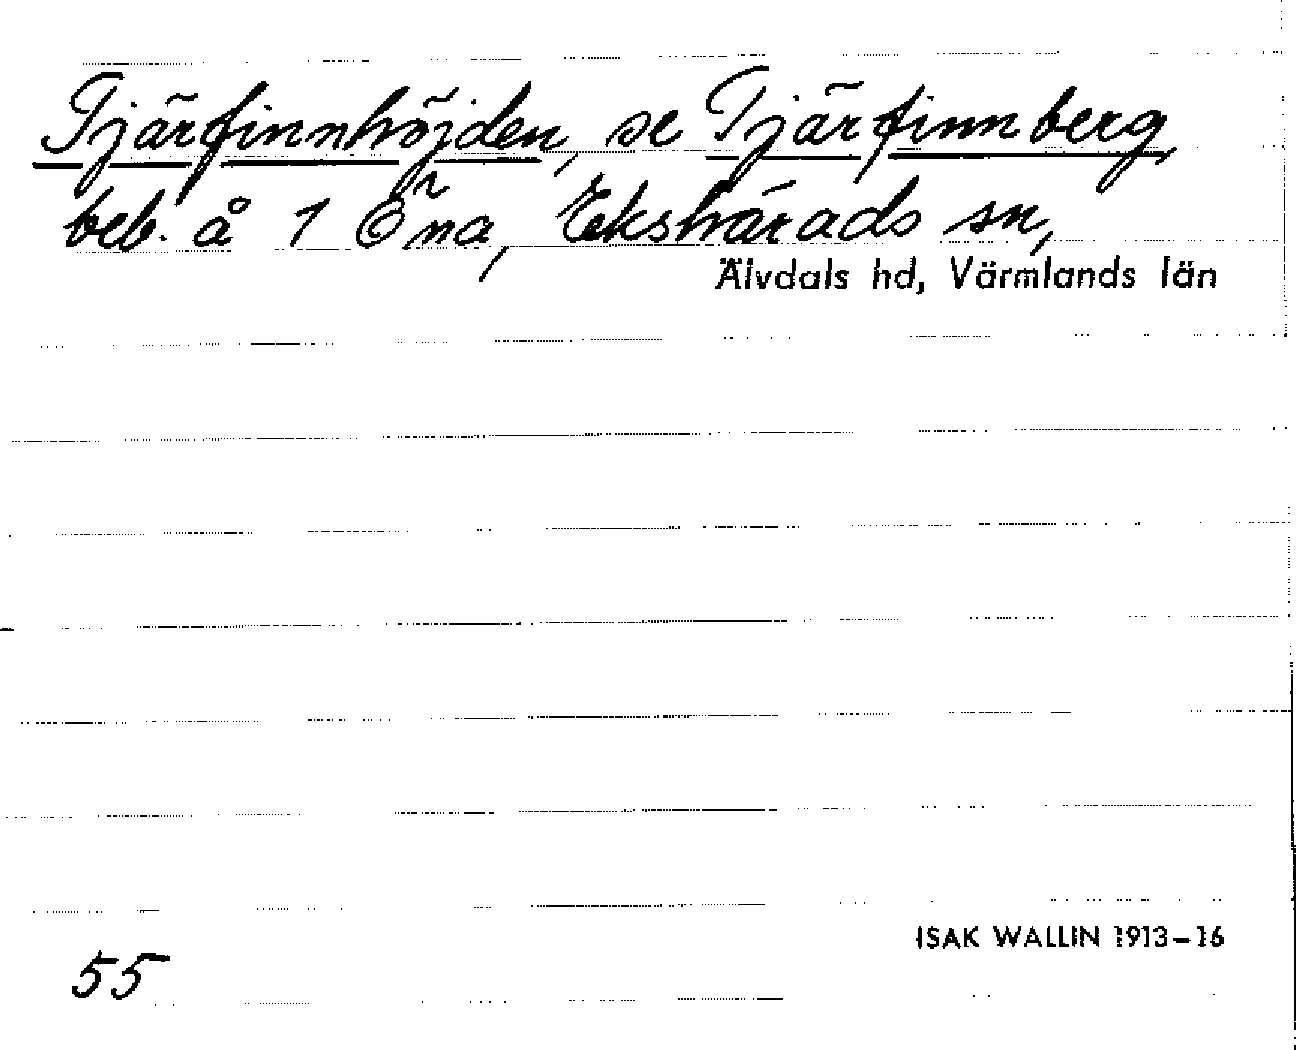 Tjärfinnhöjden, se Tjärfinnberg,
beb. å 1 Öna, Ekshärads sn,
Älvdals hd, Värmlands län
ISAK WALLIN 1913–16
55